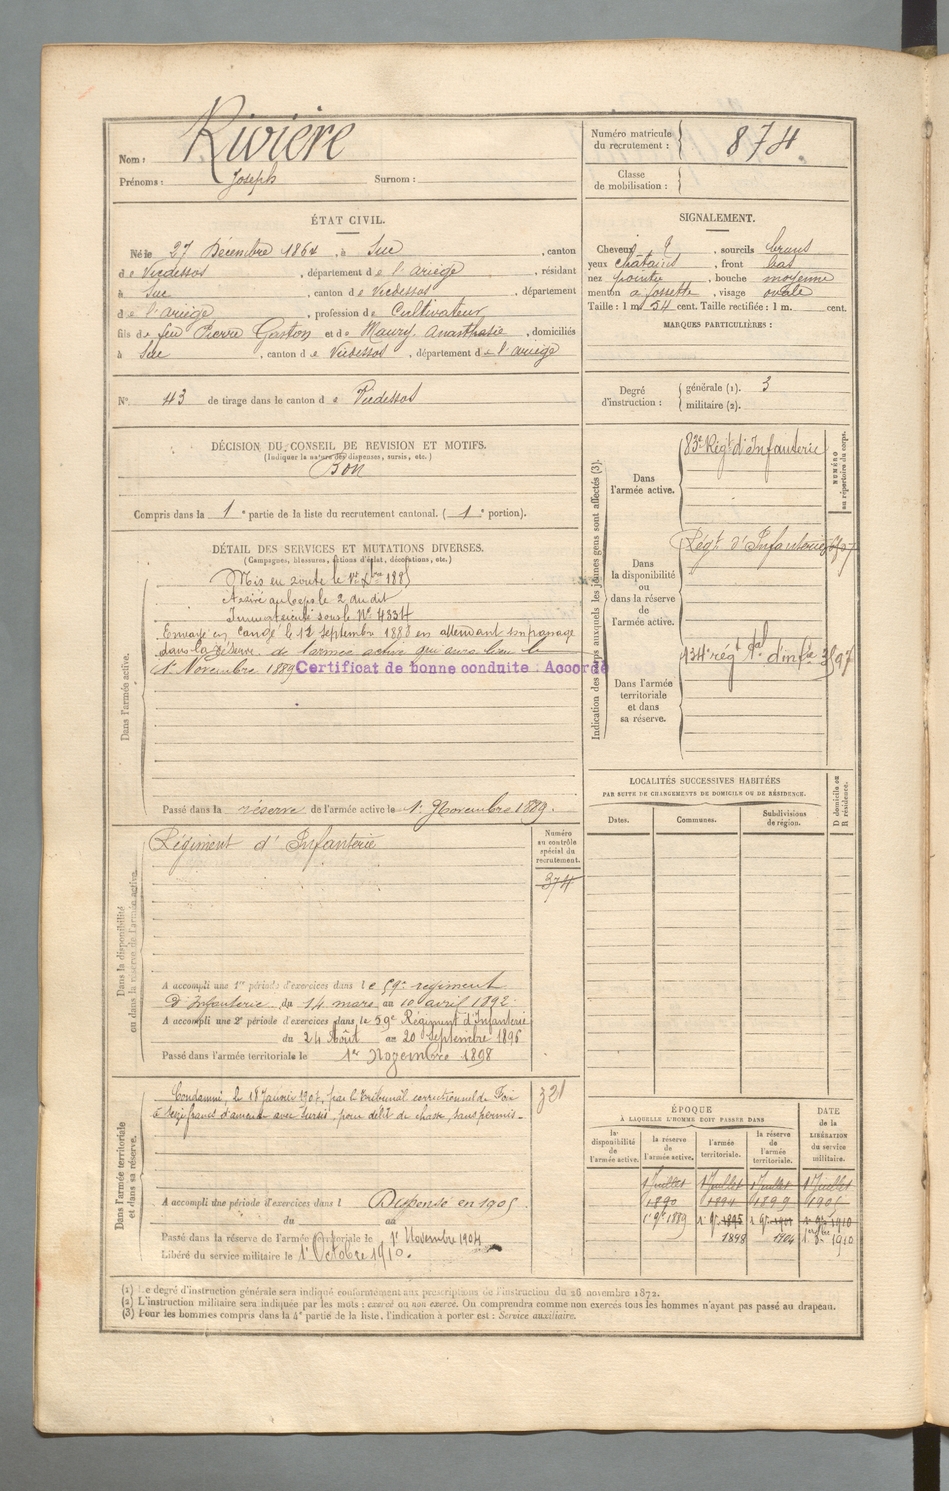 Nom : Rivière
Prénoms : Joseph Surnom :
Numéro matricule du recrutement : 874.
Classe de mobilisation :
ÉTAT CIVIL.
Né le 27 Décembre 1864, à Suc, canton
de Vicdessos, département de l'ariège, résidant
à Suc, canton de Vicdessos, département
de l'ariège, profession de Cultivateur
fils de feu Pierre Gaston et de Maury Anasthasie, domiciliés
à Suc, canton de Vicdessos, département de l'ariège
N° 43 de tirage dans le canton de Vicdessos
SIGNALEMENT.
Cheveux, sourcils bruns
yeux châtains, front bas
nez pointu, bouche moyenne
menton à fossette, visage ovale
Taille : 1 m. 54 cent. Taille rectifiée : 1 m. cent.
MARQUES PARTICULIÈRES :
Degré d'instruction : générale (1). 3
militaire (2).
DÉCISION DU CONSEIL DE REVISION ET MOTIFS.
(Indiquer la nature des dispenses, sursis, etc.)
Bon
Compris dans la 1e partie de la liste du recrutement cantonal. (1e portion).
DÉTAIL DES SERVICES ET MUTATIONS DIVERSES.
(Campagnes, blessures, actions d'éclat, décorations, etc.)
Dans l'armée active.
Mis en route le 1er Xbre 1885
Arrivé au Corps le 2 du dit
Immatriculé sous le N° 4334
Envoyé en congé le 12 septembre 1888 en attendant son passage
dans la réserve de l'armée active qui aura lieu le
1er Novembre 1889 Certificat de bonne conduite : Accordé
Passé dans la réserve de l'armée active le 1er Novembre 1889.
Dans la disponibilité ou dans la réserve de l'armée active.
Régiment d'Infanterie
Numéro au contrôle spécial du recrutement.
374
A accompli une 1re période d'exercices dans le 59e régiment
d'Infanterie, du 14 mars au 10 avril 1892
A accompli une 2e période d'exercices dans le 59e Régiment d'Infanterie
du 24 Août au 20 septembre 1895
Passé dans l'armée territoriale le 1er Novembre 1898
Dans l'armée territoriale et dans sa réserve.
321
Condamné, le 18 Janvier par le tribunal correctionnel de Foix
à seize francs d'amende avec sursis, pour délit de chasse, sans permis.
A accompli une période d'exercices dans l Dispensé en 1905
du au
Passé dans la réserve de l'armée territoriale le 1er Novembre 1904
Libéré du service militaire le 1er Octobre 1910.
Indication des corps auxquels les jeunes gens sont affectés (3).
NUMÉRO au répertoire du corps.
Dans l'armée active.
83e Régt d'Infanterie
Dans la disponibilité ou dans la réserve de l'armée active.
Régt d'Infanterie
Dans l'armée territoriale et dans sa réserve.
134e régt tal d'infie
LOCALITÉS SUCCESSIVES HABITÉES
PAR SUITE DE CHANGEMENTS DE DOMICILE OU DE RÉSIDENCE.
Dates. Communes. Subdivisions de région. D domicile ou R résidence.
ÉPOQUE
À LAQUELLE L'HOMME DOIT PASSER DANS
la disponibilité de l'armée active.
la réserve de l'armée active.
l'armée territoriale.
la réserve de l'armée territoriale.
DATE de la LIBÉRATION du service militaire.
1 Juillet 1 Juillet 1 Juillet 1 Juillet
1890 1894 1899 1905
1er 9e 1889 1er 9e 1895 1er 9e 1901 1910
1898 1904 1er 8bre 1910
(1) Le degré d'instruction générale sera indiqué conformément aux prescriptions de l'instruction du 26 novembre 1872.
(2) L'instruction militaire sera indiquée par les mots : exercé ou non exercé. On comprendra comme non exercés tous les hommes n'ayant pas passé au drapeau.
(3) Pour les hommes compris dans la 4e partie de la liste, l'indication à porter est : Service auxiliaire.